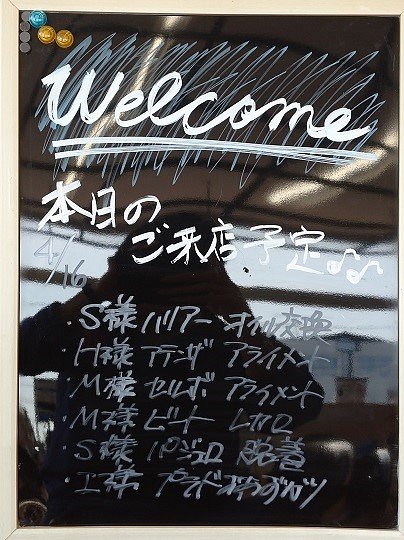 Welcome
本日の
ご来店予定♪♪
4/16
・S様 ハリアー オイル交換
・H様 アテンザ アライメント
・M様 セルボ アライメント
・M様 ビート レカロ
・S様 パジェロ 脱着
・I様 プラド